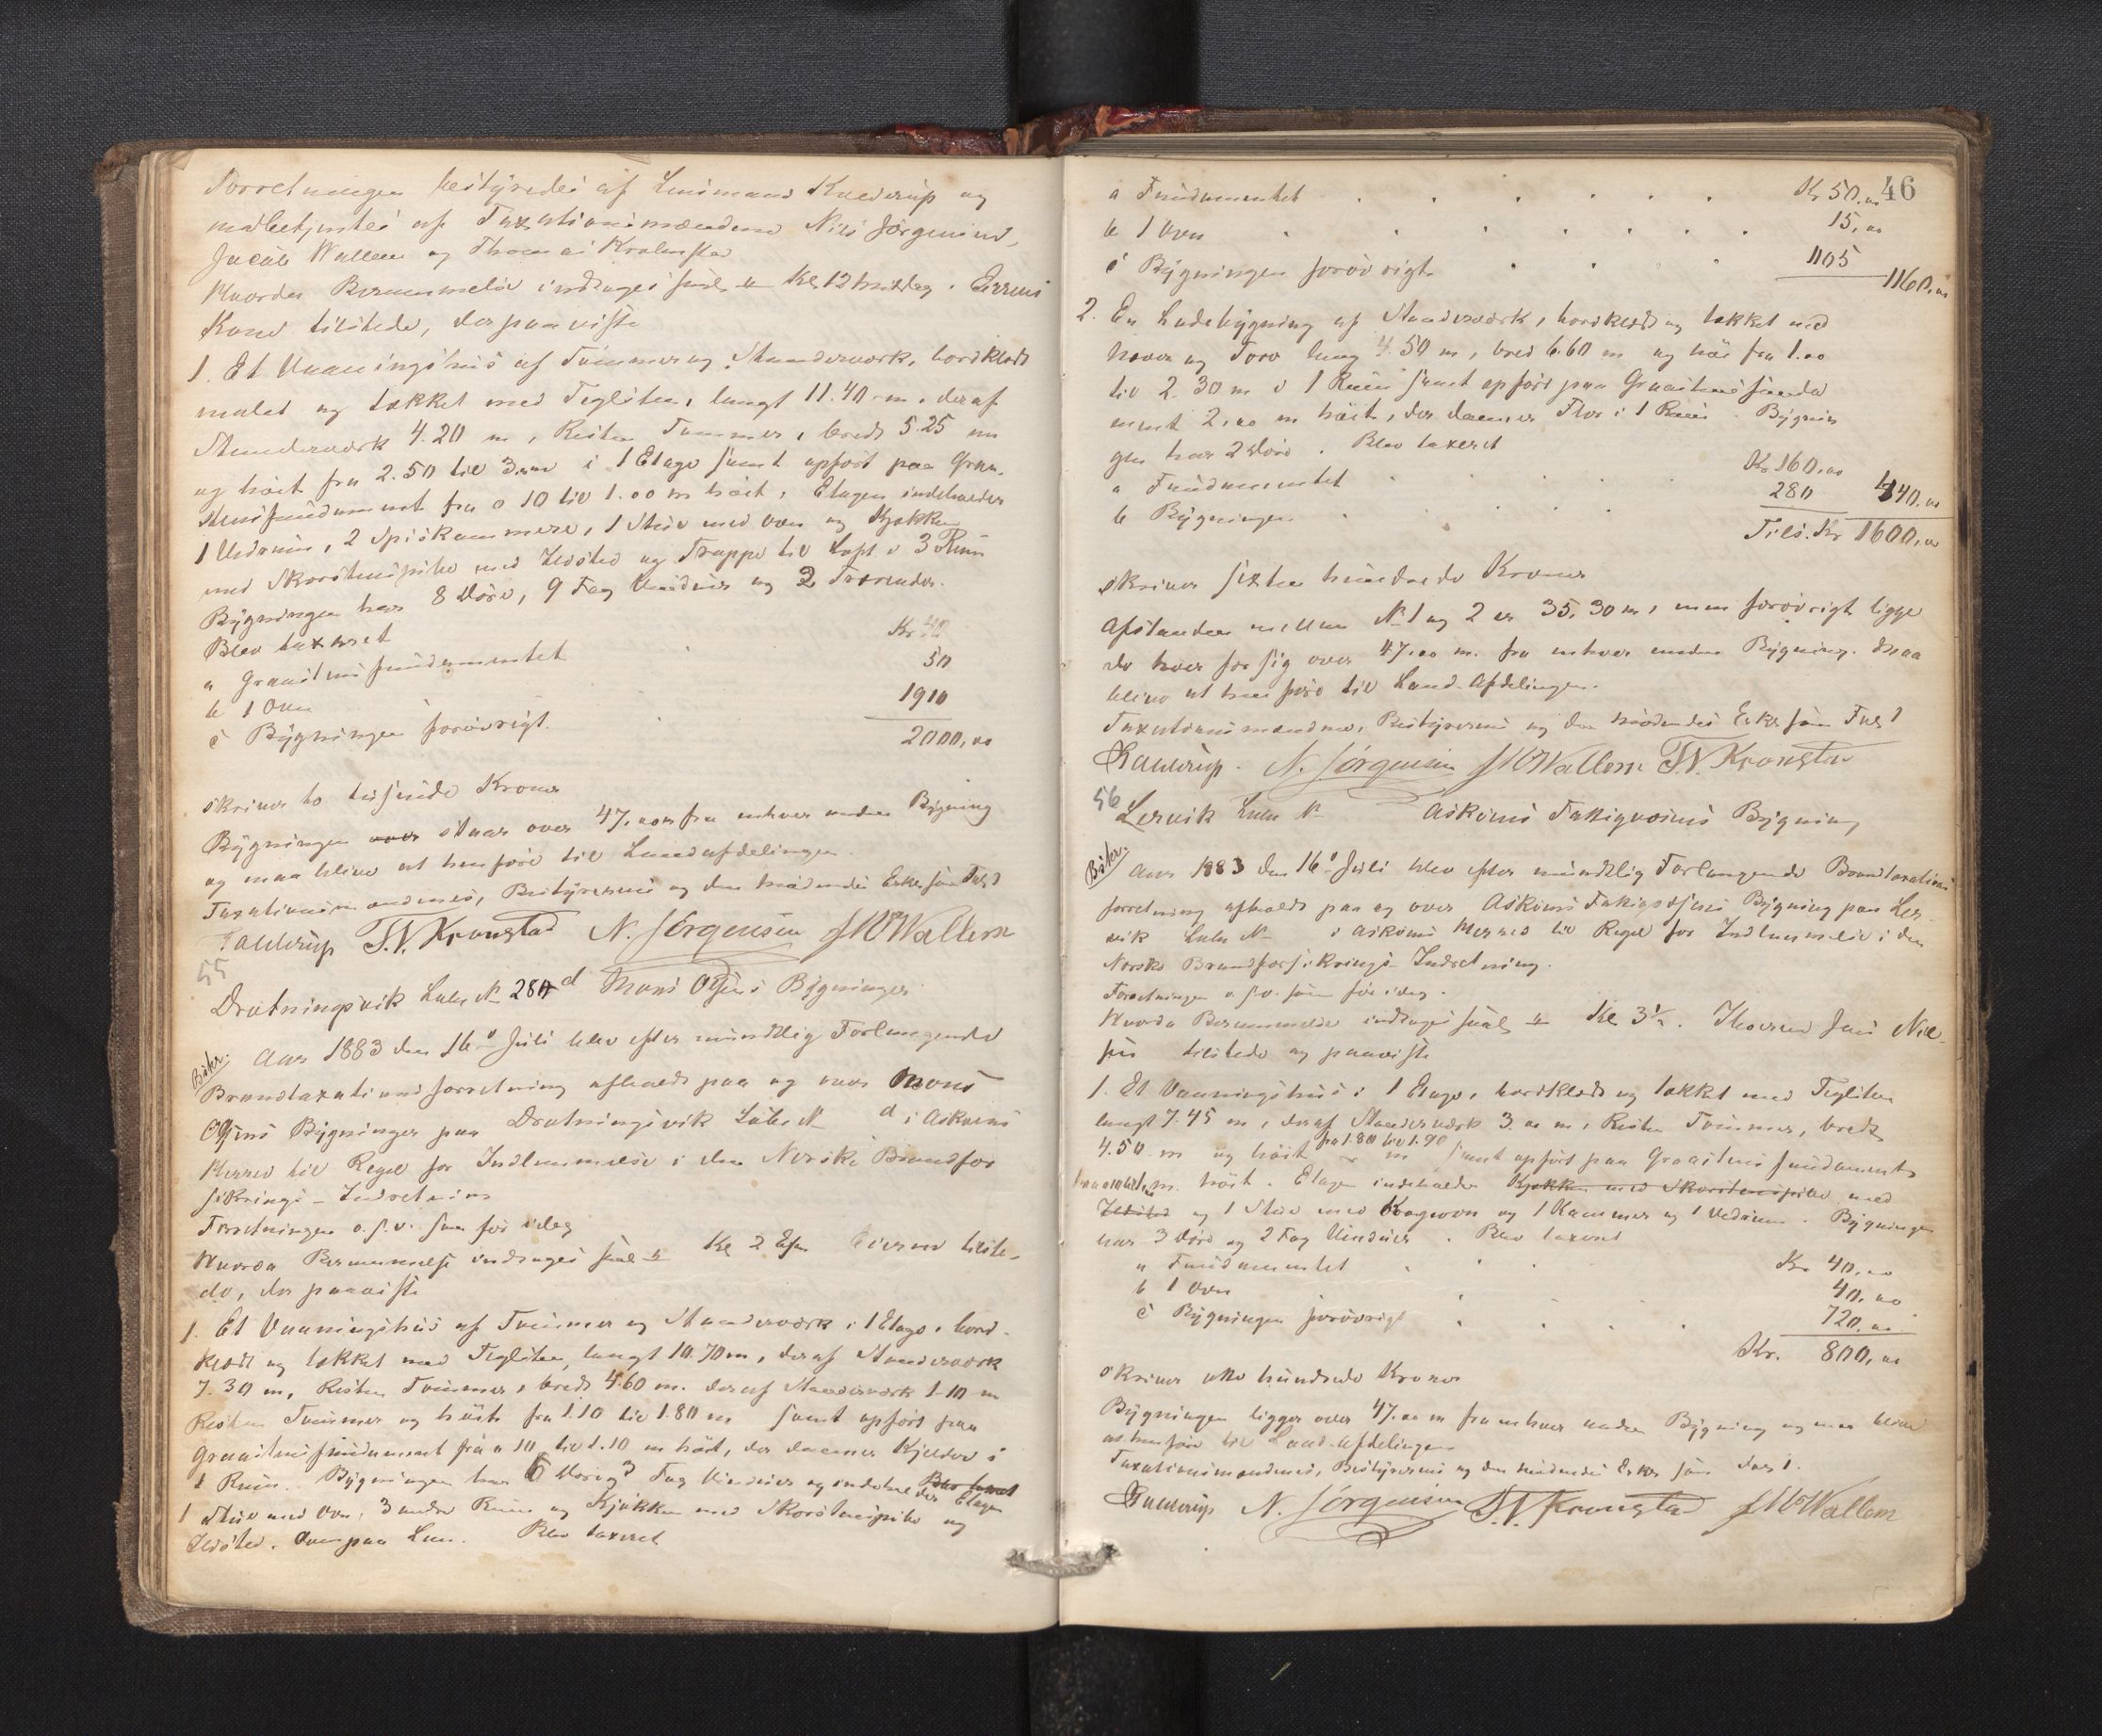 Forretningen bestyredes af Lensmand Kaldrup og
medbetjentes af Taxationsmændene Nils Jørgensen,
Jacob Wallem og Thomas Kronstad
Hvorda Berammelse indtages skal " Kl 12 Middag. Eierens
Kone tilstede, der paaviste
1. Et Vaaningshus af Tømmer og Standerværk, bordklædt
malet og tækket med Teglsten, langt 11.40 m. deraf
Standerværk 4.20 m, Resten Tømmer, bredt 5.25 m
og høit fra 2.50 til 3.00 i 1 Etage samt opført paa Graa-
stensfundament fra 0 10 til 1.00 m høit, Etagen indeholder
1 Vedrum, 2 Spiskammere, 1 Stue med Ovn og Kjøkken
med Skorstenspibe med Ildsted og Trappe til Loft i 3 Rum
Bygningen har 8 Døre, 9 Fag Vinduer og 2 Tværender.
Blev taxeret
a Graastensfundamentet Kr 40
b 1 Ovn 50
c Bygningen forøvrigt. 1910
2000,00
skriver to tusinde Kroner
Bygningen over staar over 47.00 m fra enhver anden Bygning
og maa blive at henføre til Landafdelingen.
Taxationsmændenes, Bestyrerens og den mødendes Erkl. som Fol. 1
Kaldrup T.N. Kronstad N. Jørgensen J M Wallem
55
Drotningsvik Løbe No 280 d Mons Olsens Bygninger
Bskr.
Aar 1883 den 16de Juli blev efter mundtlig Forlangende
Brandtaxationsforretning afholdt paa og over Mons
Olsens Bygninger paa Drotningsvik Løbe No d i Askøens
Herred til Regel for Indlemmelse i den Norske Brandfor
sikrings-Indretning
Forretningen o. s. v. som før idag
Hvorda Berammelse indtages skal " Kl 2 Efm Eieren tilste-
de, der paaviste
1. Et Vaaningshus af Tømmer og Standerværk i 1 Etage, bord-
klædt og tækket med Teglsten, langt 10.70 m, deraf Standerværk
7.30 m, Resten Tømmer, bredt 4.60 m. deraf Standerværk 1.10 m
Resten Tømmer og høit fra 1.10 til 1.80 m samt opført paa
Graastensfundament fra 0 10 til 1.10 m høit, der danner Kjelder i
1 Rum. Bygningen har 6 Døre og 3 Fag Vinduer og indeholder Blev taxeret Etagen
1 Stue med Ovn, 3 andre Rum og Kjøkken med Skorstenspibe og
Ildsted. Ovenpaa Lem. Blev taxeret
46
a Fundamentet Kr 50.00
b 1 Ovn 15,00
c Bygningen forøvrigt 1105
1160,00
2. En Ladebygning af Standerværk, bordklædt og tækket med
Næver og Torv lang 4.50 m, bred 6.60 m og høi fra 1.00
til 2.30 m i 1 Rum samt opført paa Graastensfunda
ment 2.00 m høit, der danner Flor i 1 Rum. Bygnin
gen har 2 Døre. Blev taxeret
a Fundamentet Kr 160,00
b Bygningen 280 440.00
Tils. Kr 1600,00
skriver sexten hundrede Kroner
Afstanden mellem No 1 og 2 er 35.30 m, men forøvrigt ligge
de hver for sig over 47.00 m. fra enhver anden Bygning. Maa
blive at henføre til Land-Afdelingen.
Taxationsmændenes, Bestyrerens og den mødendes Erkl som Fol 1
Kaldrup. N. Jørgensen J M Wallem T.N. Kronstad
56
Lervik Løbe No Askøens Fattigvæsens Bygning
Bskr.
Aar 1883 den 16de Juli blev efter mundtlig Forlangende Brandtaxations
forretning afholdt paa og over Askøens Fattigvæsens Bygning paa Ler-
vik Løbe No i Askøens Herred til Regel for Indlemmelse i den
Norske Brandforsikrings-Indretning.
Forretningen o. s. v. som før idag.
Hvorda Berammelse indtages skal " Kl 3½. Iboeren Jens Niel-
sen tilstede og paaviste
1. Et Vaaningshus i 1 Etage, bordklædt og tækket med Teglsten
langt 7.45 m, deraf Standerværk 3.00 m, Resten Tømmer, bredt
4.50 m og høit fra 1.80 til 1.90 m samt opført paa Graastens fundament
m. høit. Etagen indeholder Kjøkken med Skorstenspibe med
Ildsted og 1 Stue med Kogeovn og 1 Kammer og 1 Vedrum. Bygningen
har 3 Døre og 2 Fag Vinduer. Blev taxeret
a Fundamentet Kr. 40,00
b 1 Ovn 40,00
c Bygningen forøvrigt 720.00
Kr. 800,00
skriver otte hundrede Kroner
Bygningen ligger over 47.00 m fra enhver anden Bygning og maa blive
at henføre til Land-Afdelingen
Taxationsmændenes, Bestyrerens og den mødendes Erkl som Fol 1.
Kaldrup N. Jørgensen T.N. Kronstad J M Wallem